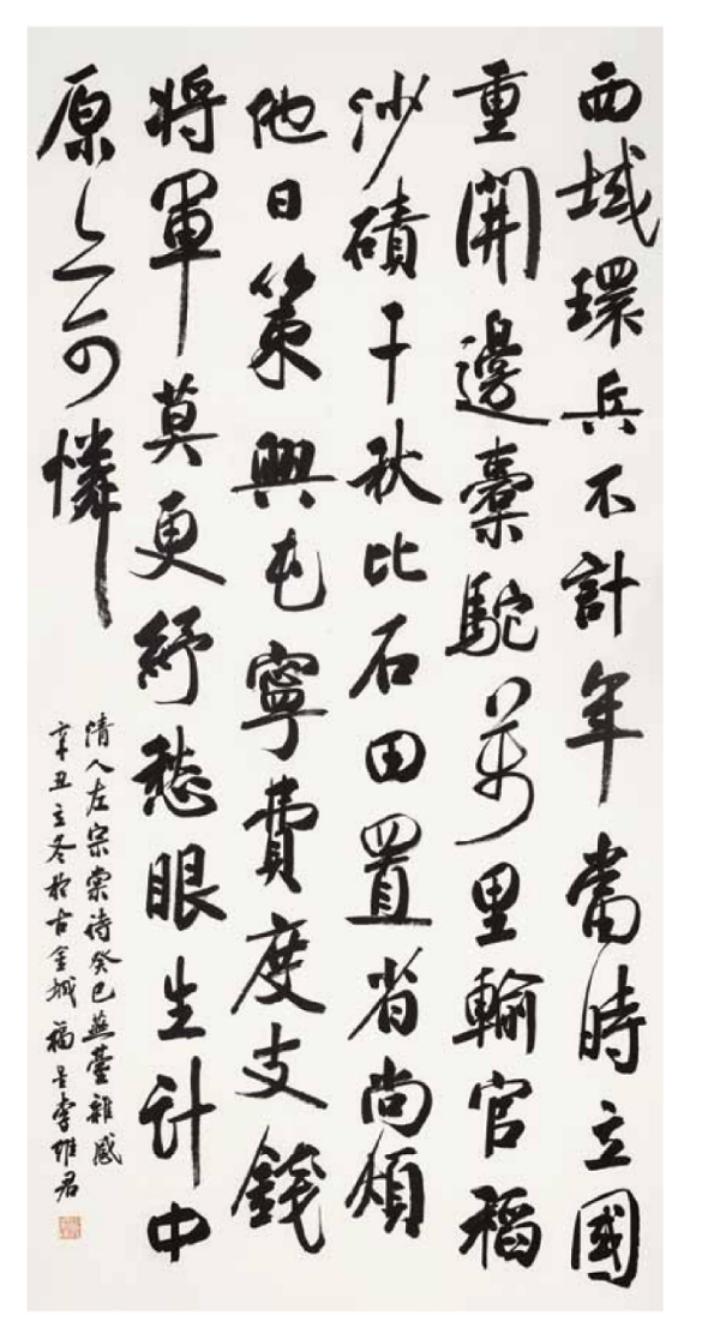 西域環兵不計年當時立國
重開邊橐駝萬里輸官稻
沙磧千秋此石田置省尚煩
他日策興屯寧費度支錢
將軍莫更紓愁眼生計中
原亦可憐
清人左宗棠詩癸巳燕臺雜感
辛丑立冬於古金城 福 李維君